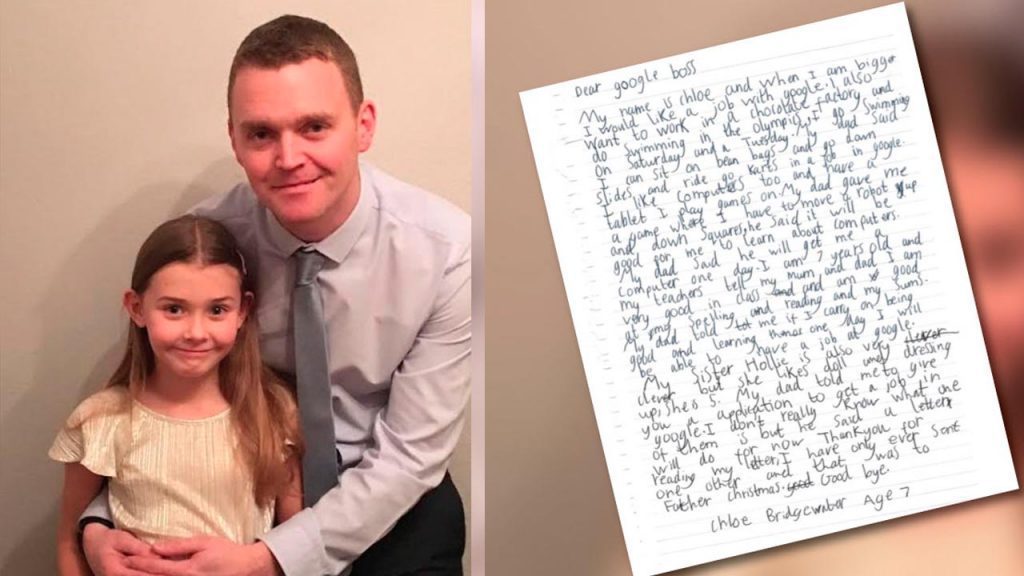 Dear google boss
My name is chloe and when I am bigger
I would like a job with google. I also
want to work in a chocolate factory and
do swimming in the olympics. I go swimming
on Saturday and a Tuesday. My dad said
I can sit on bean bags and go down
slides and ride go karts in a job in google.
I like computers too and have a
tablet I play games on. My dad gave me
a game where I have to move a robot up
and down squares, he said it will be
good for me to learn about computers.
My dad said he will get me a
computer one day. I am 7 years old and
my teachers tell my mum and dad I am
very good in class and am good
at my spelling and reading and my sums.
My dad told me if I carry on being
good and learning then one day I will
be able to have a job at google.
My sister Hollie is also very
clever but she likes dolls and dressing
up, she is 5. My dad told me to give
you a application to get a job in
google. I don't really know what one
of them is but he said a letter
will do for now. Thankyou for
reading my letter, I have only ever sent
one other and that was to
Father christmas. Good bye.
Chloe Bridgewater Age 7